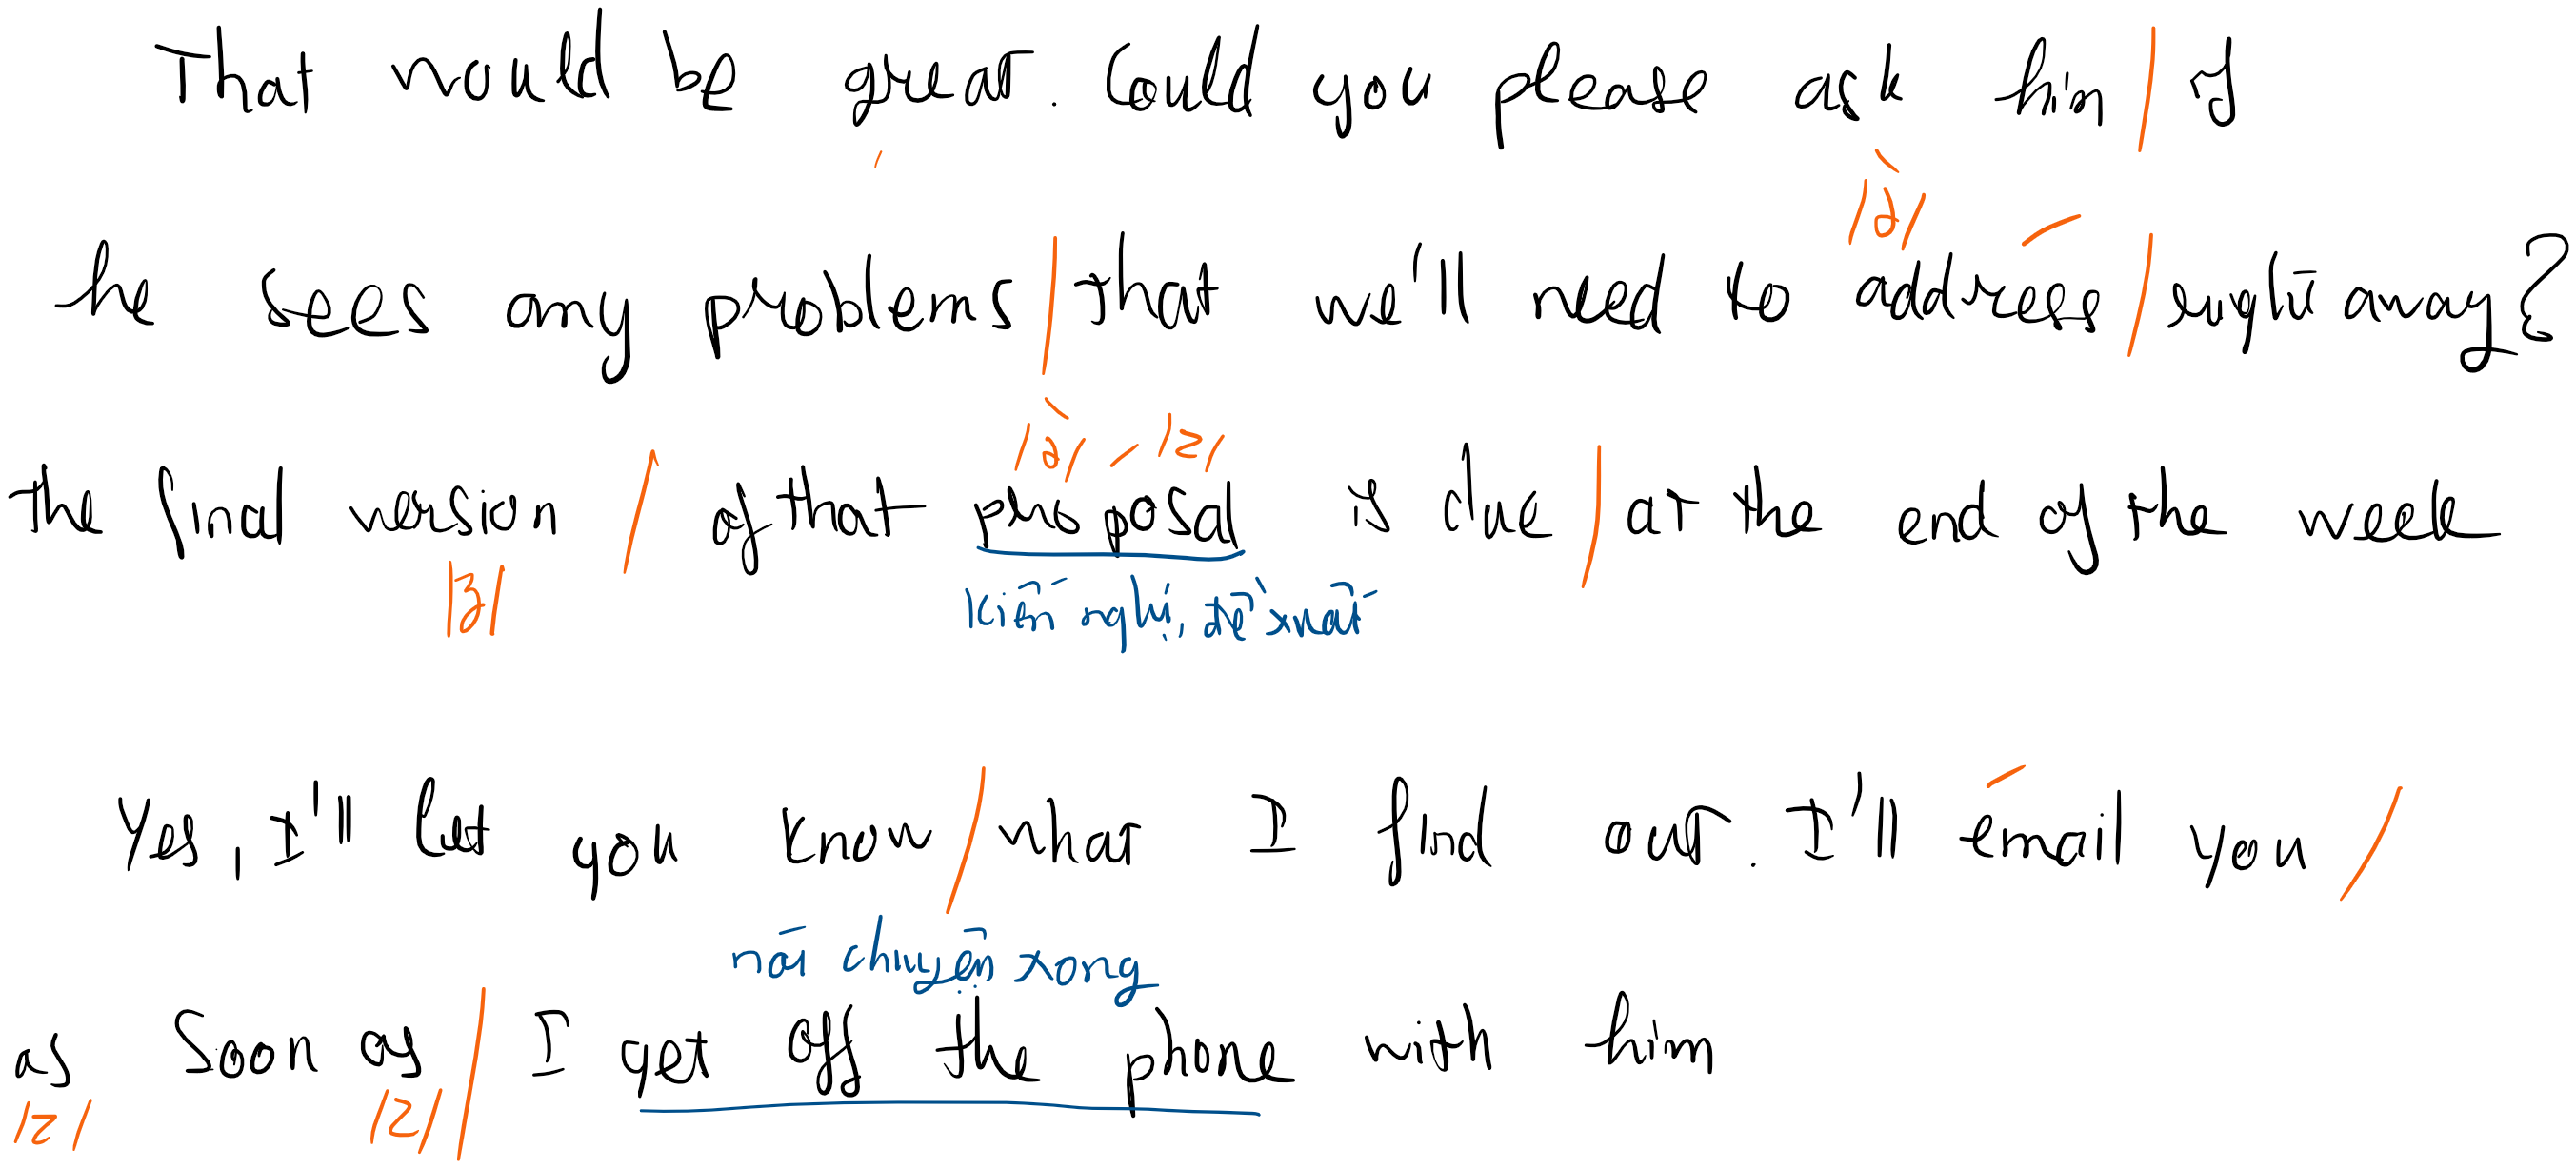 That would be great. Could you please ask him / if
/ə/
he sees any problems / that we'll need to address / right away?
/ə/ /z/
the final version / of that proposal is due / at the end of the week
/ʒ/
kiến nghị, đề xuất
Yes, I'll let you know / what I find out. I'll email you /
nói chuyện xong
as soon as / I get off the phone with him
/z/ /z/